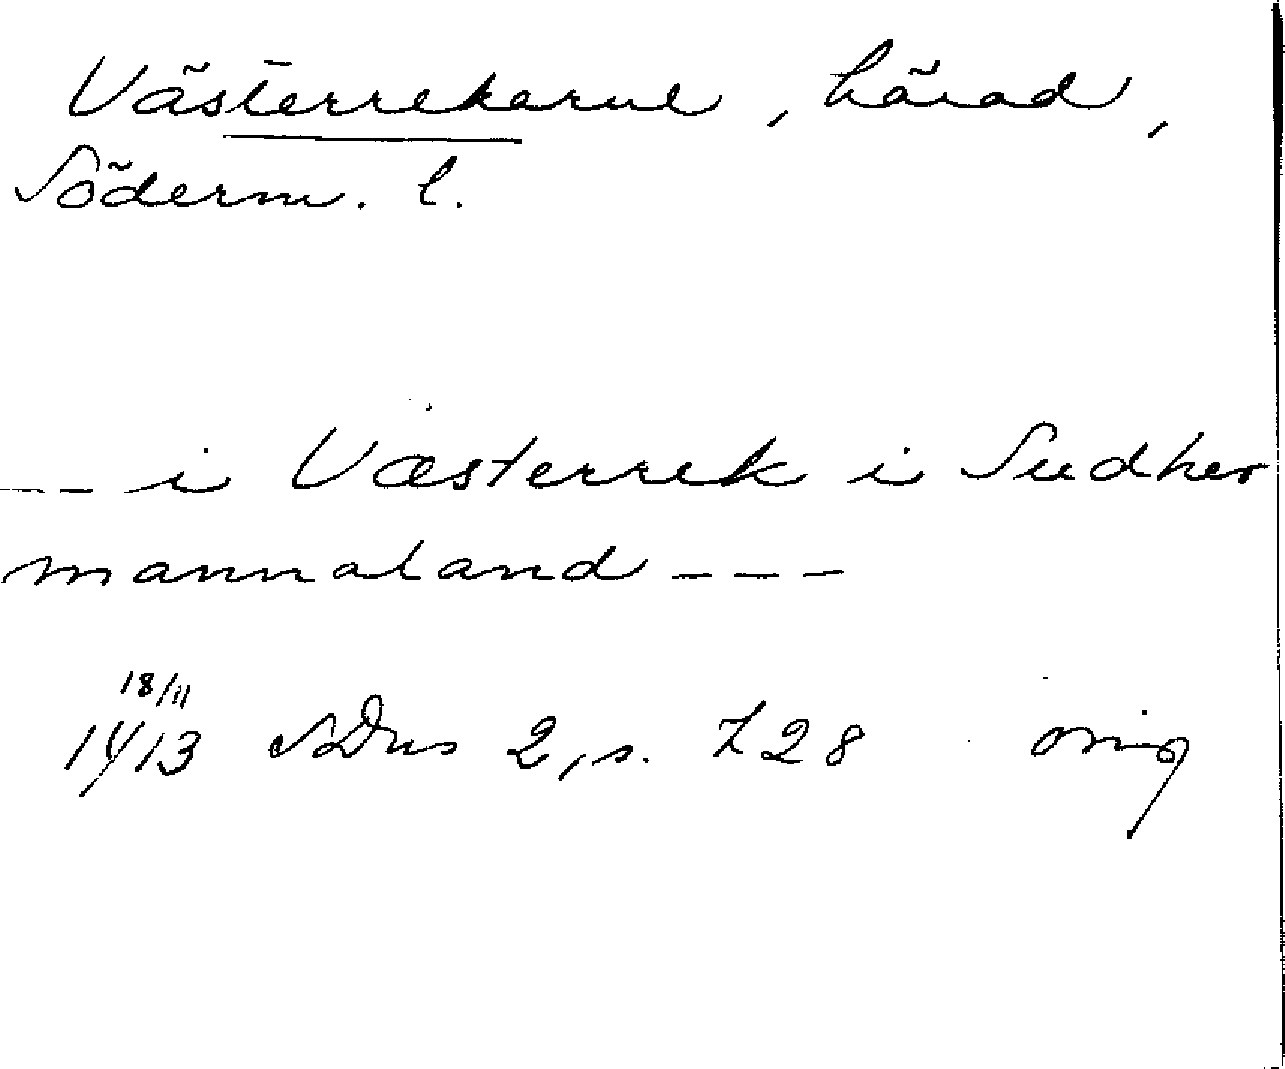 Västerrekarne, härad,
Söderm. l.
-- i Væsterrek i Sudher
mannaland ---
18/11
1413 SDns 2, s. 728 orig